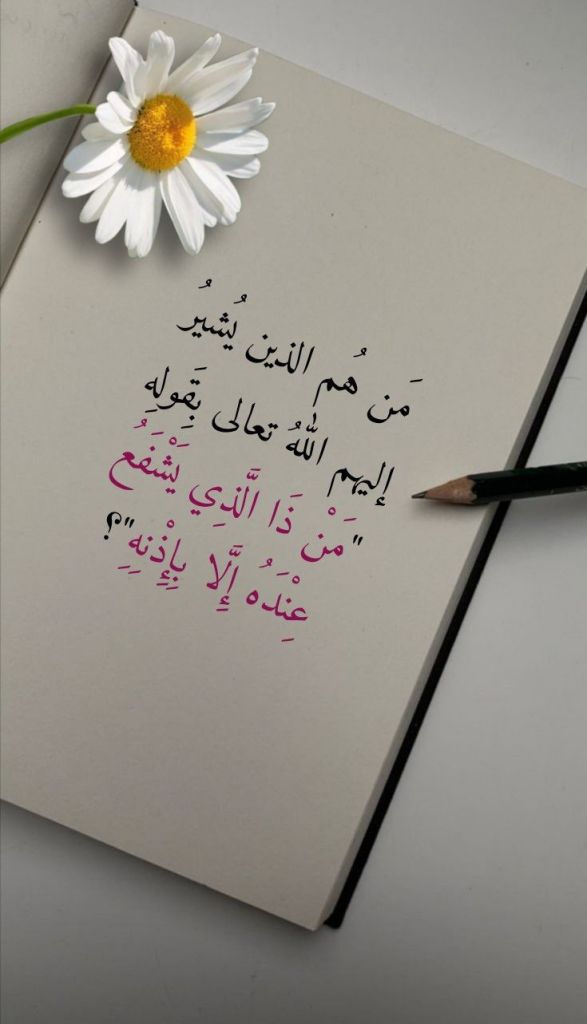 مَن هُم الذين يُشيُر
إليهم اللهُ تعالى بِقَولهِ
"مَنْ ذَا الَّذِي يَشْفَعُ
عِنْدَهُ إِلَّا بِإِذْنِهِ"؟